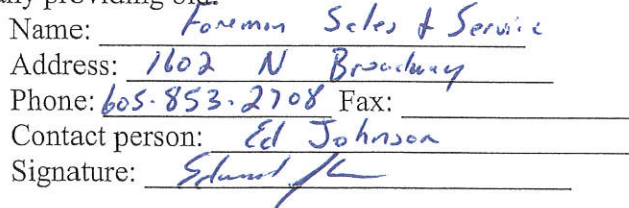 providing bid.
Name: Foreman Sales & Service
Address: 1602 N Broadway
Phone: 605-853-2708 Fax:
Contact person: Ed Johnson
Signature: Edward